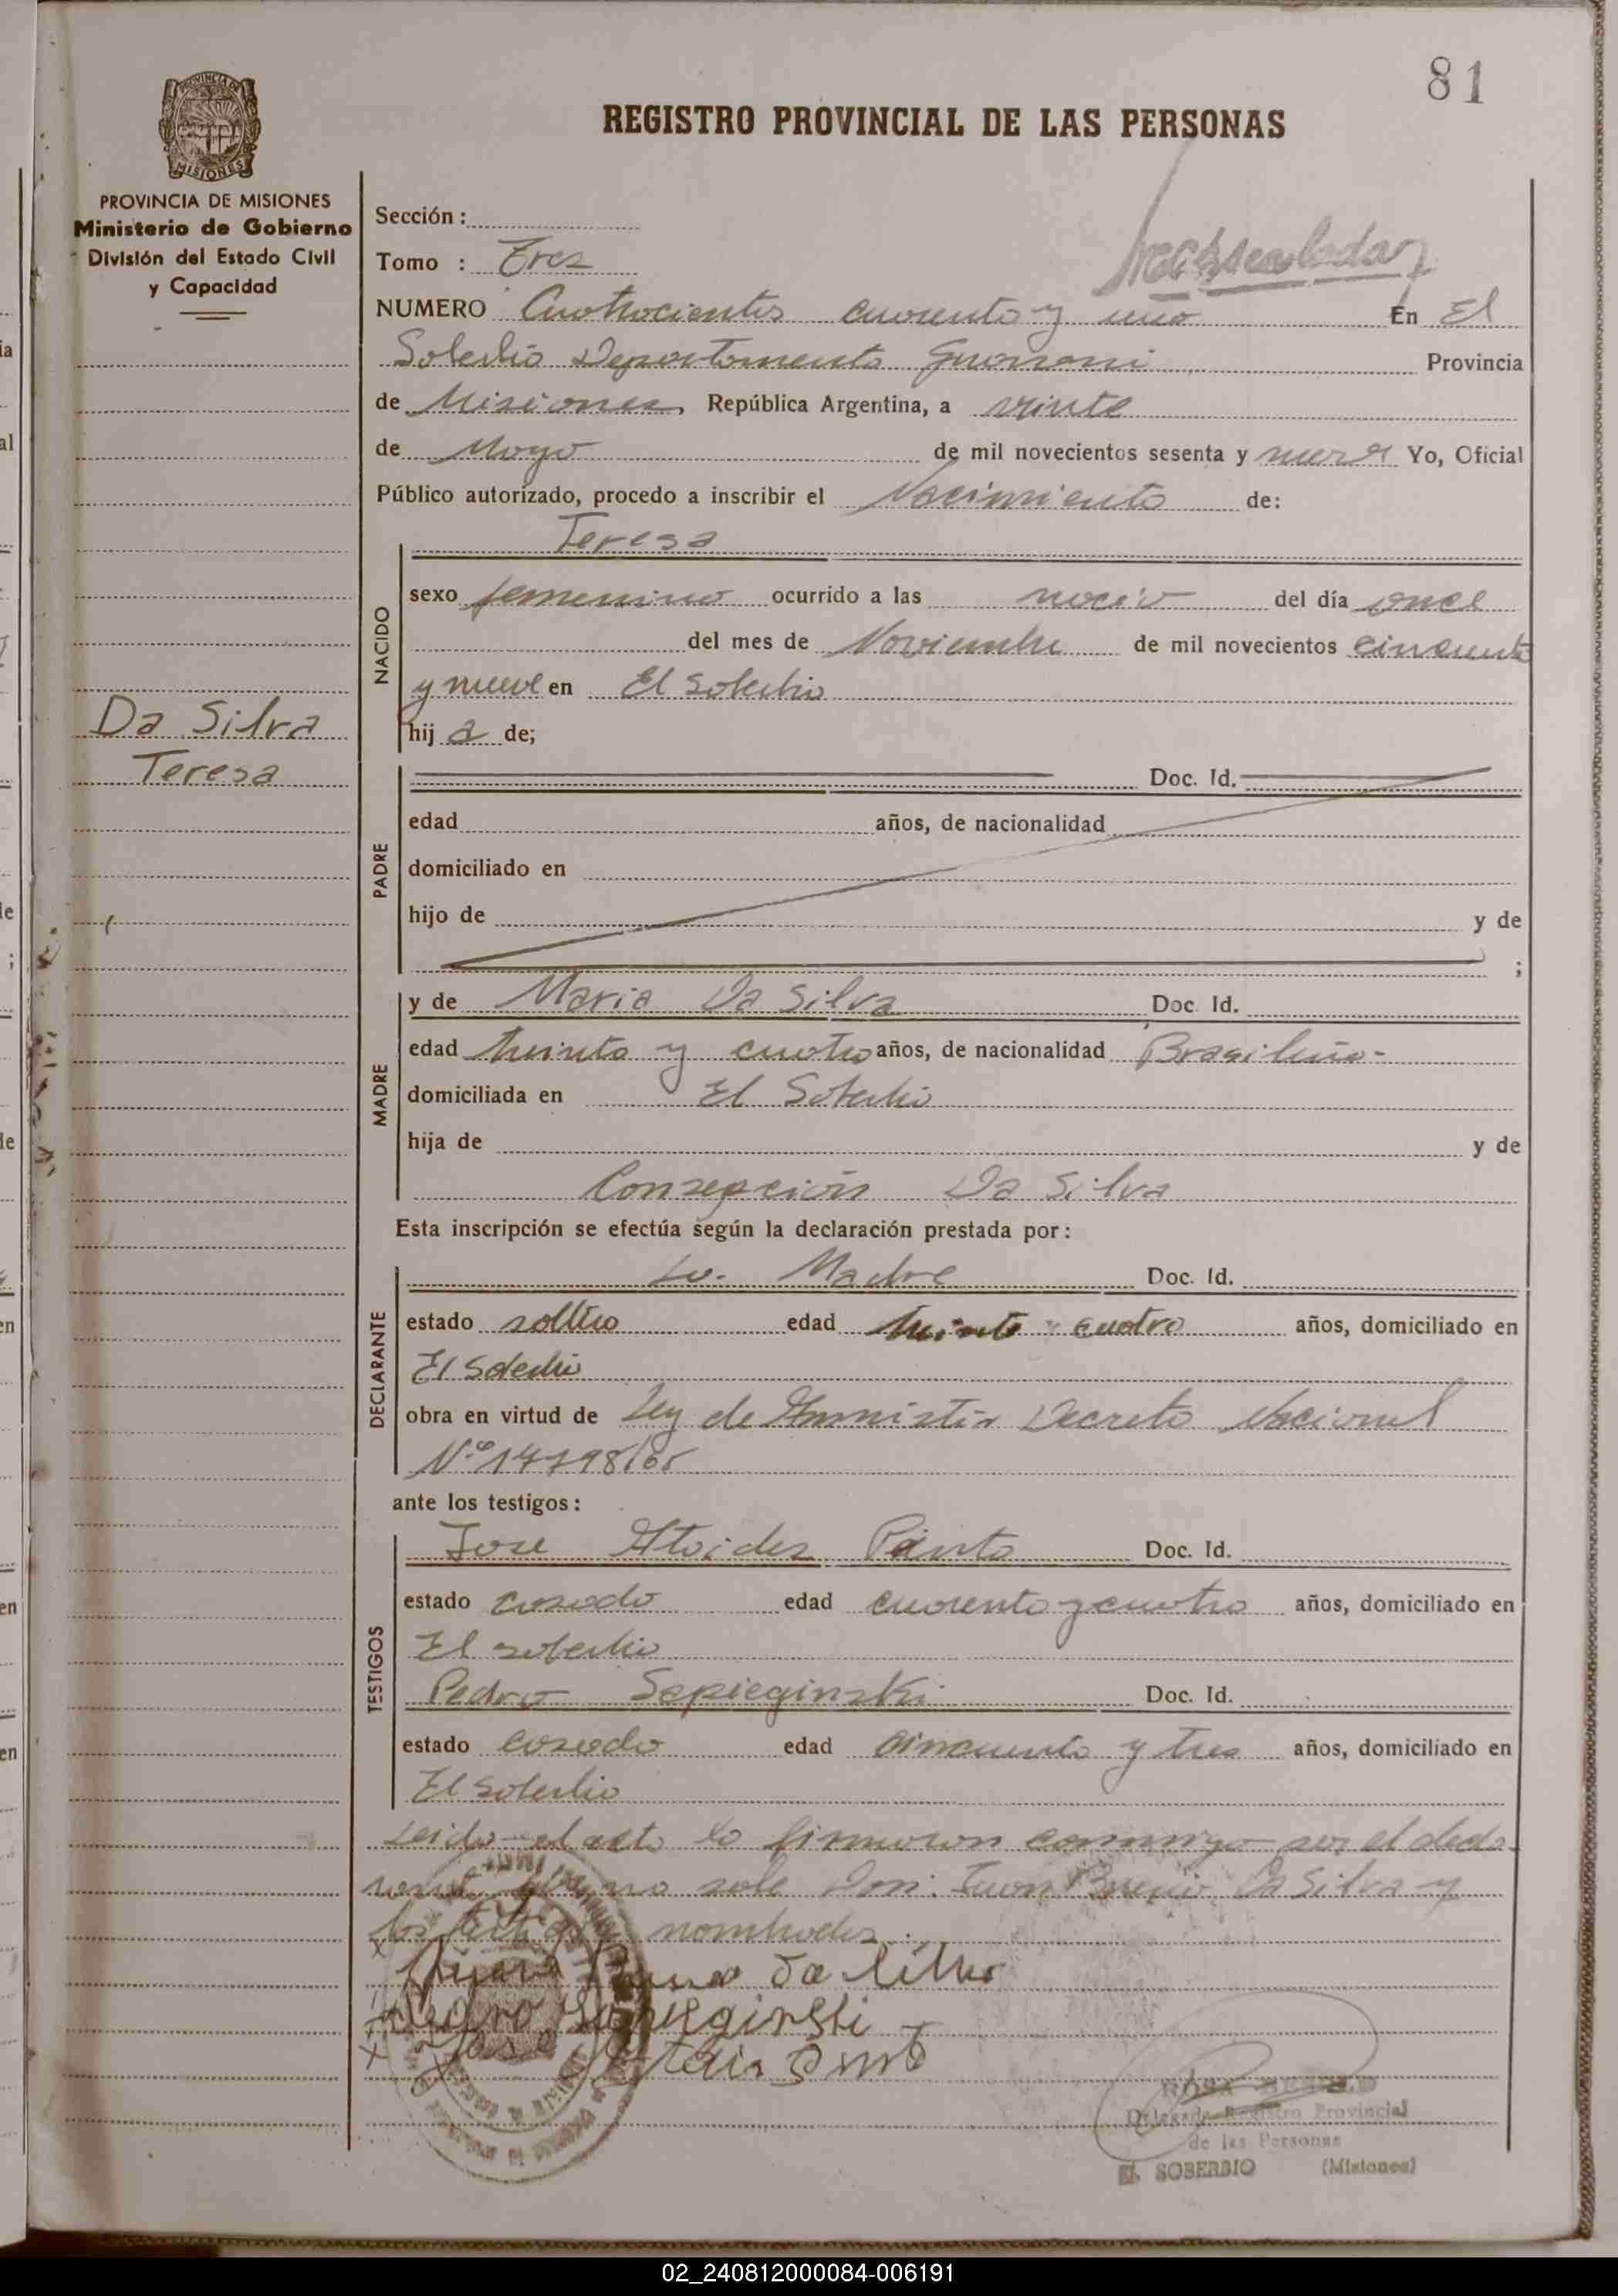 81
REGISTRO PROVINCIAL DE LAS PERSONAS
PROVINCIA DE
MISIONES
PROVINCIA DE MISIONES
Ministerio de Gobierno
División del Estado Civil
y Capacidad
Da Silva
Teresa
Sección :
Tomo : Tres
NUMERO Cuatrocientos cuarenta y uno En El
Soberbio Departamento Guarani Provincia
de Misiones, República Argentina, a veinte
de Mayo de mil novecientos sesenta y nueve Yo, Oficial
Público autorizado, procedo a inscribir el Nacimiento de:
Teresa
NACIDO
sexo femenino ocurrido a las del día once
del mes de Noviembre de mil novecientos cincuenta
y nueve en El Soberbio
hij a de;
PADRE
Doc. Id.
edad años, de nacionalidad
domiciliado en
hijo de y de
;
MADRE
y de Maria Da Silva Doc. Id.
edad treinta y cuatro años, de nacionalidad Brasileña-
domiciliada en El Soberbio
hija de y de
Consepción Da Silva
Esta inscripción se efectúa según la declaración prestada por:
DECLARANTE
La Madre Doc. Id.
estado soltera edad treinta y cuatro años, domiciliado en
El Soberbio
obra en virtud de Ley de Amnistia Decreto Nacional
ante los testigos:
TESTIGOS
Jose Pinto Doc. Id.
estado casado edad cuarenta y cuatro años, domiciliado en
El soberbio
Pedro Sapieginski Doc. Id.
estado casado edad cincuenta y tres años, domiciliado en
El Soberbio
Leida el acta la firmaron conmigo por el decla-
rante que no sabe Don: Juan Da Silva y
los testigos nombrados.
da Silva
Pedro Sapieginski
Jose
Delegada Registro Provincial
de las Personas
EL SOBERBIO (Misiones)
02_240812000084-006191